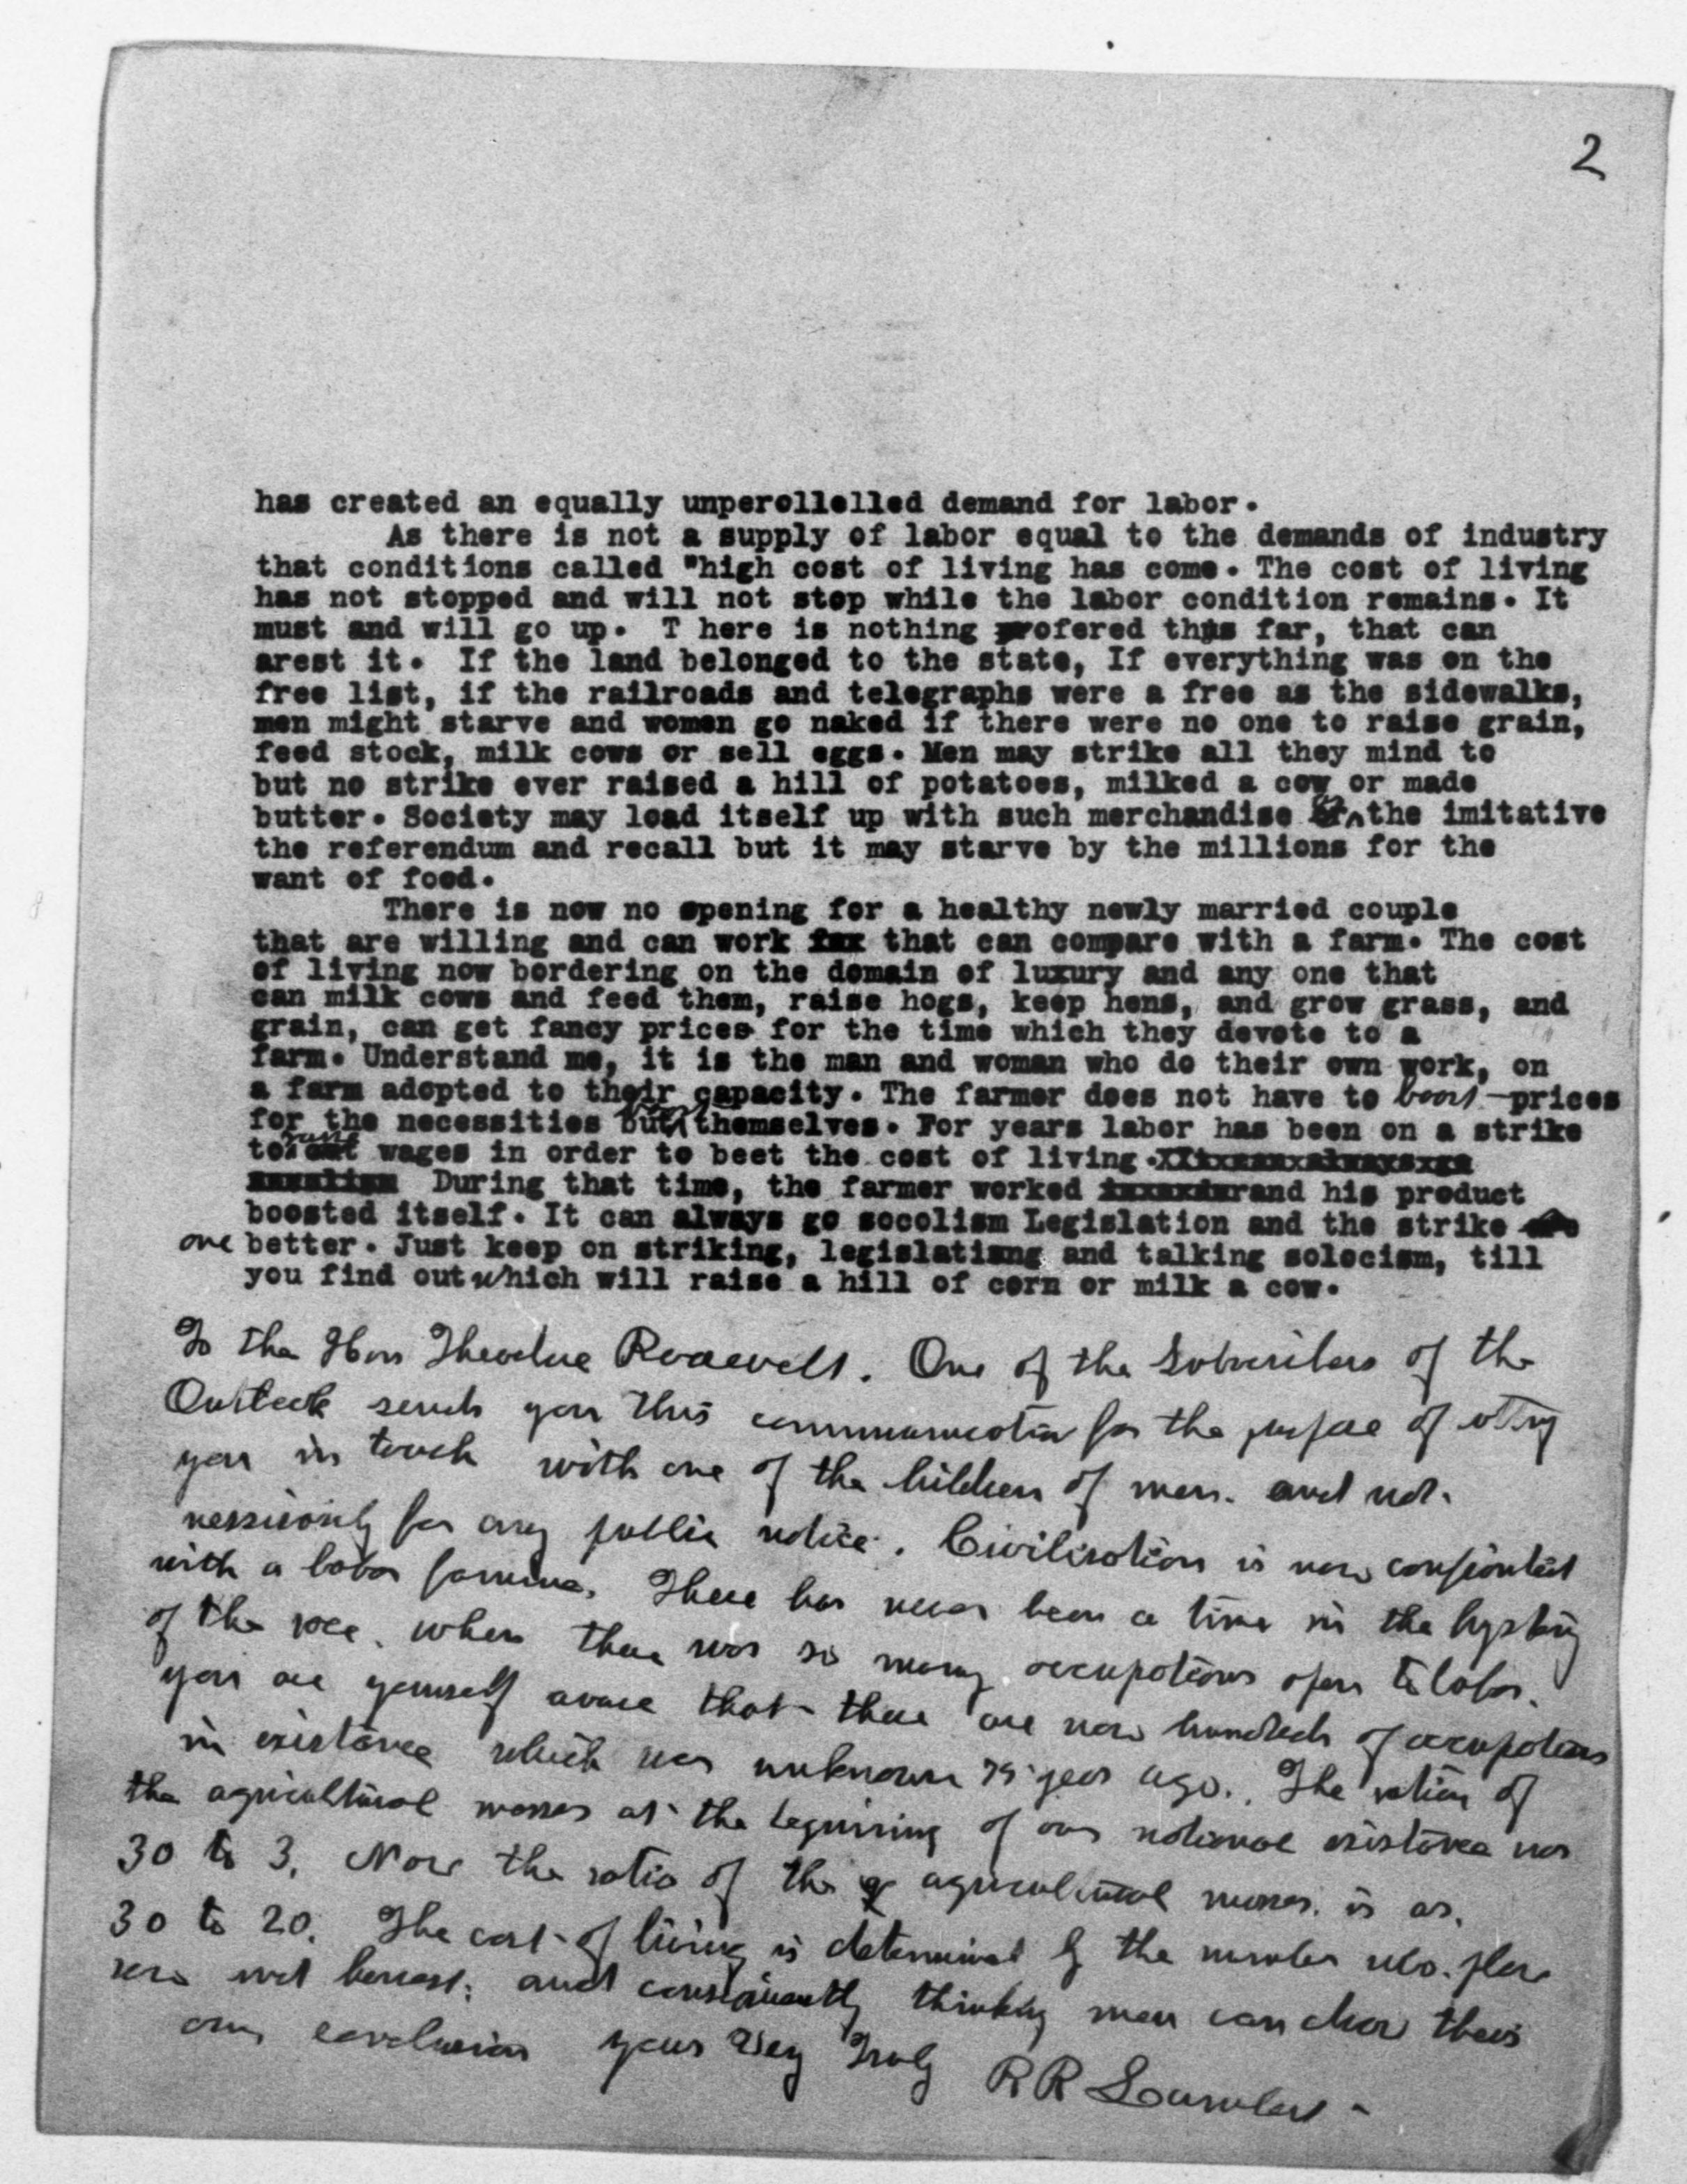 2
has created an equally unperollelled demand for labor.
As there is not a supply of labor equal to the demands of industry
that conditions called "high cost of living has come. The cost of living
has not stopped and will not stop while the labor condition remains. It
must and will go up. T here is nothing profered thus far, that can
arest it. If the land belonged to the state, If everything was on the
free list, if the railroads and telegraphs were a free as the sidewalks,
men might starve and women go naked if there were no one to raise grain,
feed stock, milk cows or sell eggs. Men may strike all they mind to
but no strike ever raised a hill of potatoes, milked a cow or made
butter. Society may load itself up with such merchandise as the imitative
the referendum and recall but it may starve by the millions for the
want of food.
There is now no opening for a healthy newly married couple
that are willing and can work that can compare with a farm. The cost
of living now bordering on the domain of luxury and any one that
can milk cows and feed them, raise hogs, keep hens, and grow grass, and
grain, can get fancy prices for the time which they devote to a
farm. Understand me, it is the man and woman who do their own work, on
a farm adopted to their capacity. The farmer does not have to boost prices
for the necessities but boost themselves. For years labor has been on a strike
to raise wages in order to beet the cost of living.
During that time, the farmer worked and his product
boosted itself. It can always go socolism Legislation and the strike
one better. Just keep on striking, legislatiang and talking solecism, till
you find out which will raise a hill of corn or milk a cow.
To the Hon Theodore Roosevelt. One of the Subscribers of the
Outlook sends you this communication for the purpose of
you in touch with one of the children of men. and not.
for any public notice. Civilisation is now confronted
with a labor famine. There has never been a time in the hystory
of the race. when there was so many occupations open to labor.
you are yourself aware that there are now hundreds of occupations
in existance which was unknown 75 years ago. The of
the agricultural masses at the beginning of our national existance was
30 to 3. Now the ratio of the agricultural masses. is as.
30 to 20. The cost of living is determined by the number who. plow
sow and harvest; and thinking men can draw their
own conclusions yours Very Truly R R